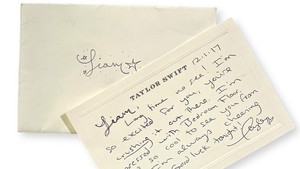 Liam
TAYLOR SWIFT
12.1.17
Liam,
Long time no see! I'm
so excited for you, you're
crushing it out there. I'm
obsessed with Bedroom Floor.
so cool to see you from
I'm always cheering
Good luck tonight!
Taylor